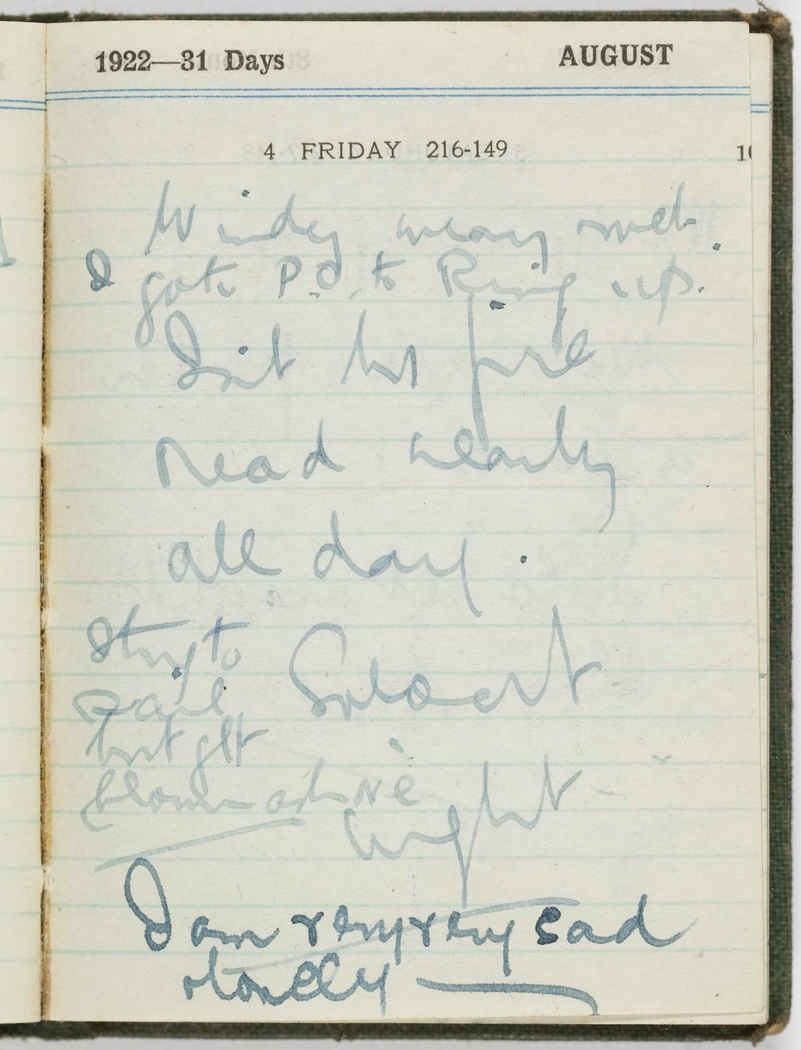 1922—31 Days AUGUST
4 FRIDAY 216-149
Windy weary wet
I got P.O. to Ring up.
Lit fire
Read nearly
all day.
to
sail
but
blown ashore
night
I am very very sad
& lonely —